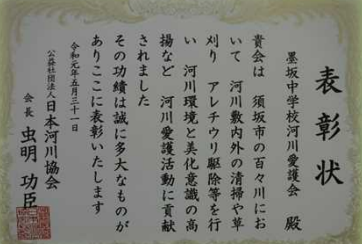 表彰状
墨坂中学校河川愛護会 殿
貴会は 須坂市の百々川にお
いて 河川敷内外の清掃や草
刈り アレチウリ駆除等を行
い 河川環境と美化意識の高
揚など 河川愛護活動に貢献
されました
その功績は誠に多大なものが
ありここに表彰いたします
令和元年五月三十一日
公益社団法人日本河川協会
会長 虫明 功臣